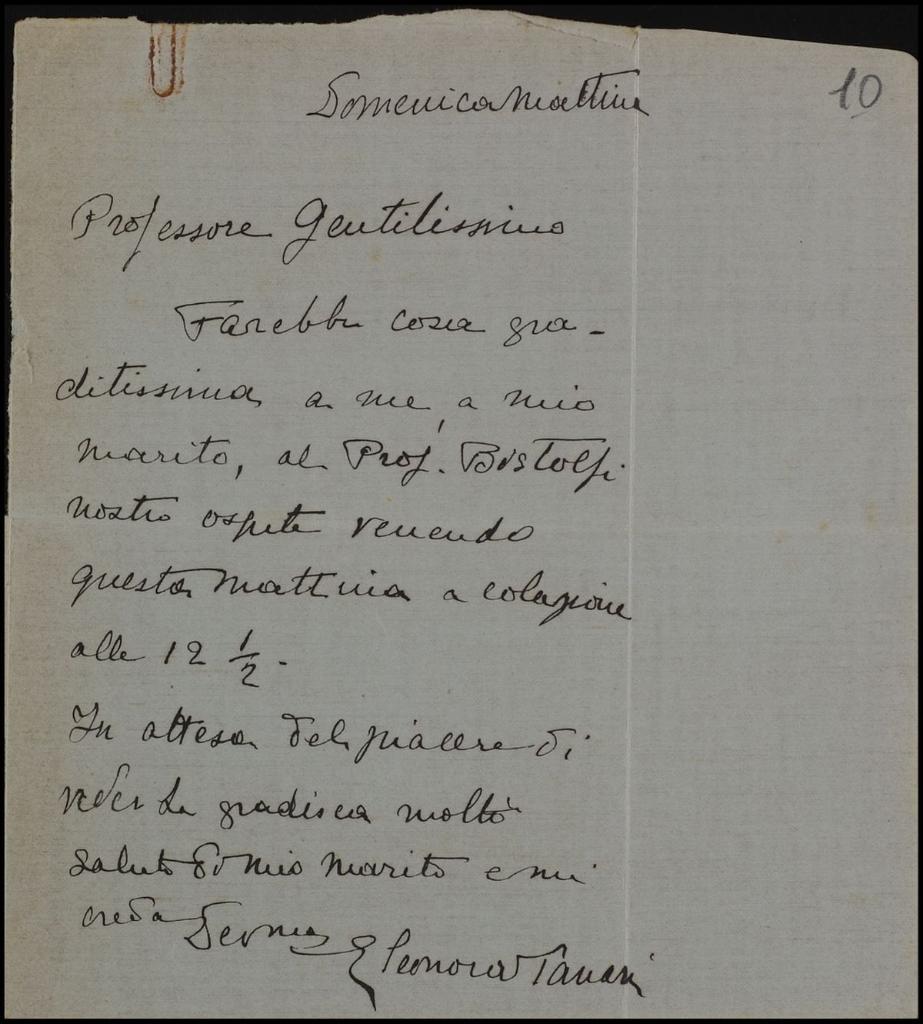 10
Domenica Mattina
Professore Gentilissimo
Farebbe cosa gra-
ditissima a me, a mio
marito, al Prof. Bistolfi
nostro ospite venendo
questa mattina a colazione
alle 12 1/2.
In attesa del piacere di
veder La gradisca molti
saluti di mio marito e mi
creda Devma Eleonora Tanari